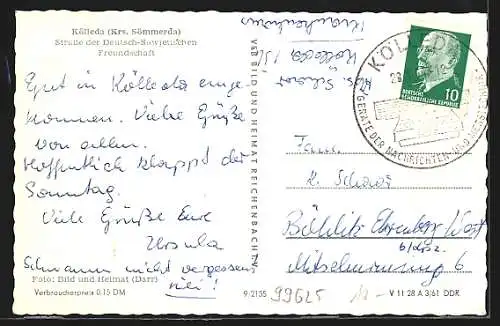 Kölleda (Krs. Sömmerda)
Straße der Deutsch-Sowjetischen
Freundschaft
Gut in Kölleda ange-
kommen. Viele Grüße
von allen.
Hoffentlich klappt der
Sonntag.
Viele Grüße Eure
Ursula
Schwamm nicht vergessen
Foto: Bild und Heimat (Darr)
Verbraucherpreis 0,15 DM
VEB BILD UND HEIMAT REICHENBACH
9/2155
99625
V 11 28 A 3/61 DDR
Kölleda
Krankenhaus
KÖLLEDA
GERÄTE DER NACHRICHTEN- UND
10
DEUTSCHE
DEMOKRATISCHE REPUBLIK
Fam.
Böhlitz-Ehrenberg
b/Lpzg.
6